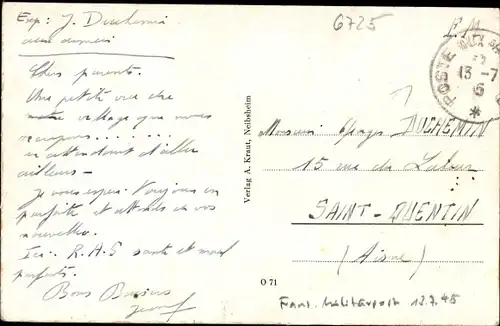 Exp: J. Duchemin
aux armées
Chers parents.
Une petite vue de
notre village que nous
occupons . . . . . . .
en attendant d'aller
ailleurs –
Je vous espère toujours en
parfaite et attends de vos
nouvelles.
Ici: R.A.S santé et moral
parfaits.
Bons Baisers
6725
F.M.
POSTE AUX
13-7
Verlag A. Kraut, Neibsheim
O 71
Monsieur Georges DUCHEMIN
15 rue du Labour
SAINT-QUENTIN
(Aisne)
Franz. Militärpost 12.7.45